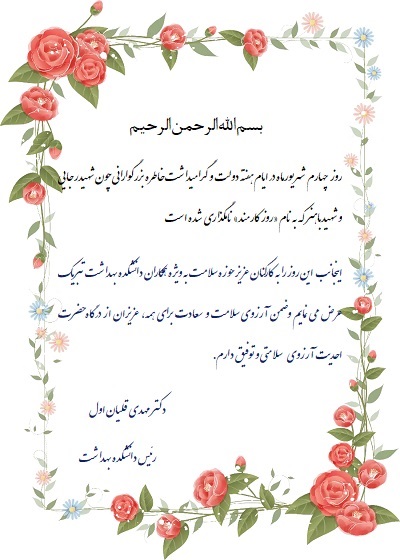 بسم الله الرحمن الرحیم
روز چهارم شهریورماه در ایام هفته دولت و گرامیداشت خاطره بزرگوارانی چون شهید رجایی
و شهید باهنر که به نام «روز کارمند» نامگذاری شده است
اینجانب این روز را به کارکنان عزیز حوزه سلامت به ویژه همکاران دانشکده بهداشت تبریک
عرض می نمایم و ضمن آرزوی سلامت و سعادت برای همه، عزیزان از درگاه حضرت
احدیت آرزوی سلامتی و توفیق دارم.
دکتر مهدی قلیان اول
رئیس دانشکده بهداشت